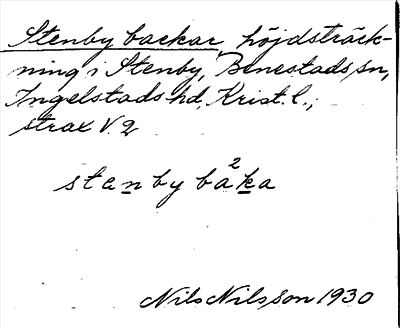 Stenby backar, höjdsträck-
ning i Stenby, Benestads sn,
Ingelstads hd, Krist. l.,
strax V. 2
stenby ba²ka
Nils Nilsson 1930